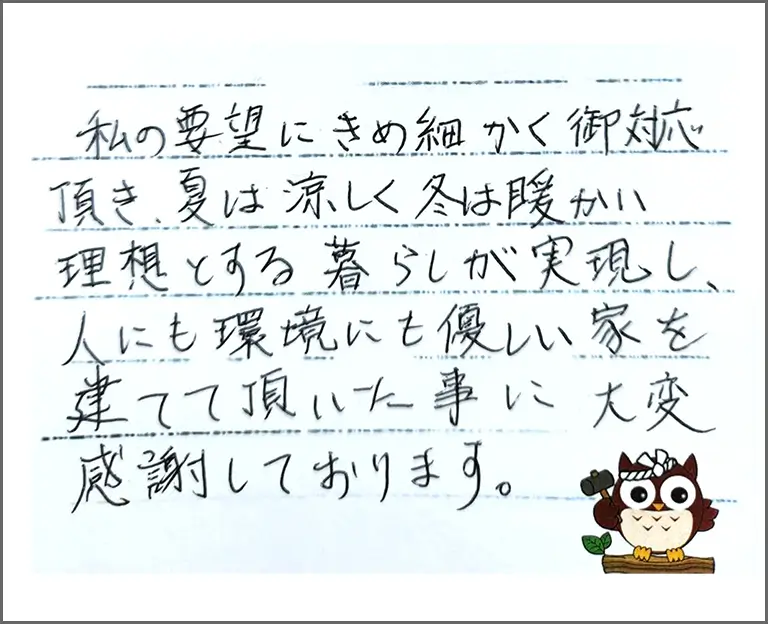 私の要望にきめ細かく御対応
頂き、夏は涼しく冬は暖かい
理想とする暮らしが実現し、
人にも環境にも優しい家を
建てて頂いた事に大変
感謝しております。